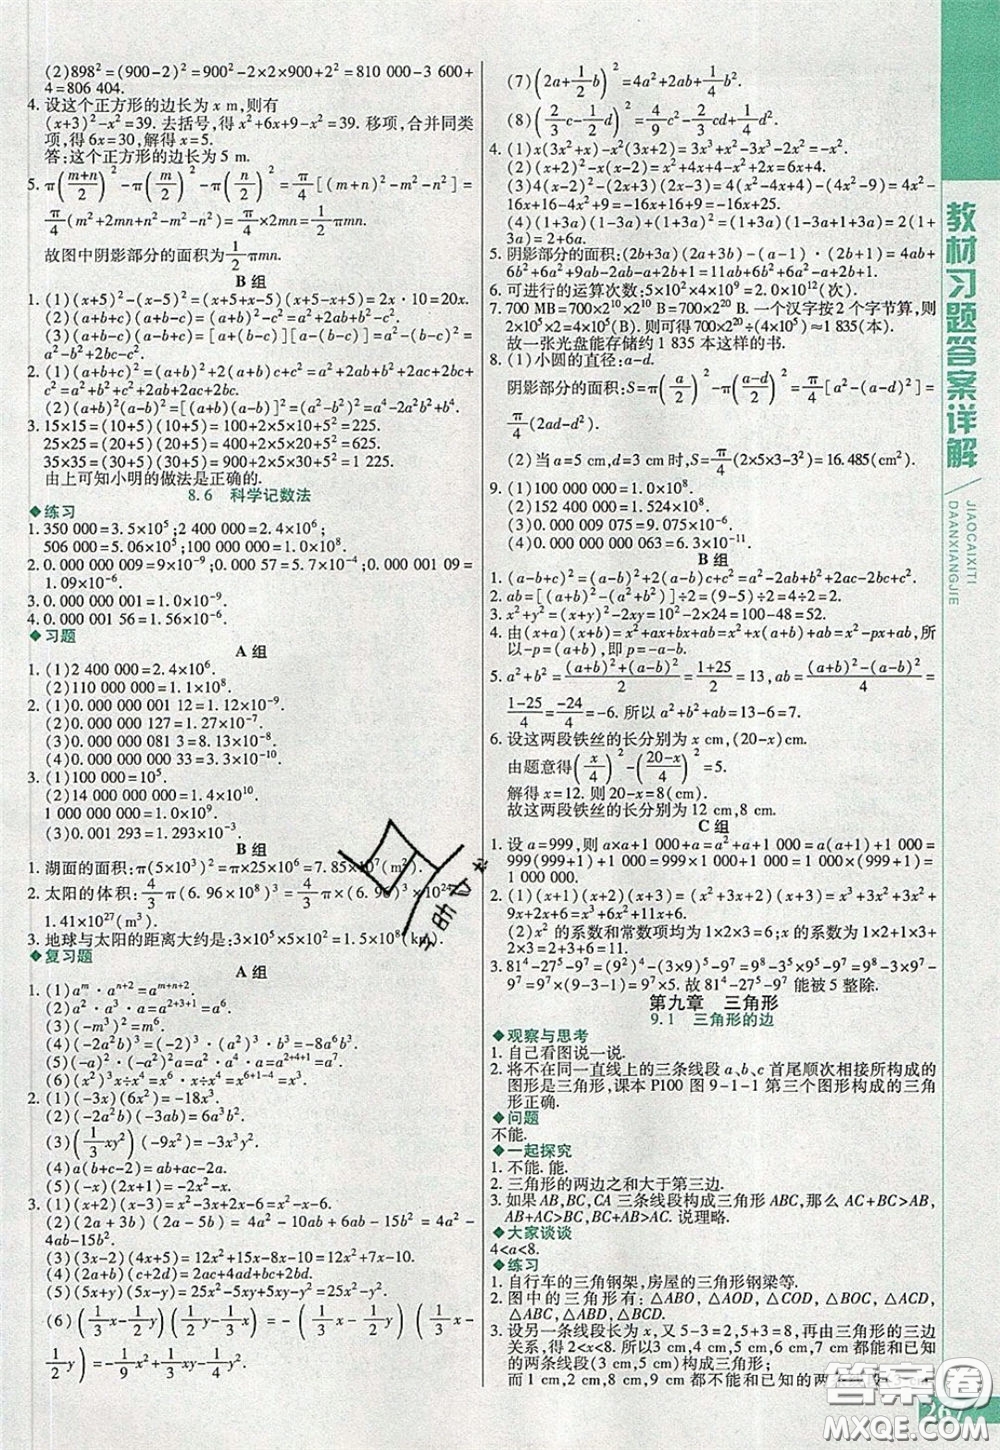 (2)898²=(900-2)²=900²-2×2×900+2²=810 000-3 600+
4=806 404.
4. 设这个正方形的边长为 x m,则有
(x+3)²-x²=39. 去括号,得 x²+6x+9-x²=39. 移项,合并同类
项,得 6x=30,解得 x=5.
答:这个正方形的边长为 5 m.
5. π((m+n)/2)²-π(m/2)²-π(n/2)²=π/4[(m+n)²-m²-n²]=
π/4(m²+2mn+n²-m²-n²)=π/4×2mn=1/2πmn.
故图中阴影部分的面积为1/2πmn.
B 组
1. (1)(x+5)²-(x-5)²=(x+5+x-5)(x+5-x+5)=2x·10=20x.
(2)(a+b+c)(a+b-c)=(a+b)²-c²=a²+2ab+b²-c².
(3)(a+b-c)(a-b+c)=[a+(b-c)][a-(b-c)]=a²-(b-c)²=
a²-b²+2bc-c².
2. (1)(a+b+c)²=(a+b)²+2(a+b)c+c²=a²+2ab+b²+2ac+2bc+
c²=a²+b²+c²+2ab+2ac+2bc.
(2)(a+b)²(a-b)²=[(a+b)(a-b)]²=(a²-b²)²=a⁴-2a²b²+b⁴.
3. 15×15=(10+5)(10+5)=100+2×5×10+5×5=225.
25×25=(20+5)(20+5)=400+2×5×20+5×5=625.
35×35=(30+5)(30+5)=900+2×5×30+5×5=1 225.
由上可知小明的做法是正确的.
8.6 科学记数法
◆练习
1. 350 000=3.5×10⁵;2 400 000=2.4×10⁶;
506 000=5.06×10⁵;110 000=1.1×10⁵.
2. 0.000 000 009=9×10⁻⁹;0.000 57=5.7×10⁻⁴;0.000 001 09=
1.09×10⁻⁶.
3. 0.000 000 001=1.0×10⁻⁹.
4. 0.000 001 56=1.56×10⁻⁶.
◆习题
A 组
1. (1)2 400 000=2.4×10⁶.
(2)110 000 000=1.1×10⁸.
2. (1)0.000 000 001 12=1.12×10⁻⁹.
(2)0.000 000 127=1.27×10⁻⁷.
(3)0.000 000 081 3=8.13×10⁻⁸.
(4)0.000 000 002=2.0×10⁻⁹.
3. (1)100 000=10⁵.
(2)14 000 000=1.4×10⁷.
1 000 000 000=1.0×10⁹.
(3)0.001 293=1.293×10⁻³.
B 组
1. 湖面的面积:π(5×10³)²=π×25×10⁶=7.85×10⁷(m²).
2. 太阳的体积:4/3π(6.96×10⁸)³=4/3π×(6.96)³×10²⁴≈
1.41×10²⁷(m³).
3. 地球与太阳的距离大约是:3×10⁵×5×10²=1.5×10⁸(km).
◆复习题
A 组
1. (1)aᵐ·aⁿ⁺²=aᵐ⁺ⁿ⁺².
(2)a²·a³·a=a²⁺³⁺¹=a⁶.
(3)(-m³)²=m⁶.
(4)(-2a²b)³=(-2)³·(a²)³·b³=-8a⁶b³.
(5)(-a)·(-a)²·a=-a·a²·a=-a¹⁺²⁺¹=-a⁴.
(6)(-x²)³÷x⁴·x=-x⁶÷x⁴·x=-x⁶⁻⁴⁺¹=-x³.
2. (1)(-3x)(6x²)=-18x³.
(2)(-2a²b)(-3ab)=6a³b².
(3)(1/3xy²)(-9x²)=-3x³y².
(4)a(b+c-2)=ab+ac-2a.
(5)(-x)(2x+1)=-2x²-x.
3. (1)(x-1)(x-2)=x²-3x+2.
(2)(2a+3b)(2a-5b)=4a²-10ab+6ab-15b²=4a²-
4ab-15b².
(3)(3x-2)(4x+5)=12x²+15x-8x-10=12x²+7x-10.
(4)(2a+b)(c+2d)=2ac+4ad+bc+2bd.
(5)(5x+y)(5x-y)=25x²-5xy+5xy-y²=25x²-y².
(6)(1/3x-1/2y)(1/3x-1/2y)=-(1/3x+1/2y)(1/3x-
1/2y)=-1/9x²+1/4y².
(7)(2a+1/2b)²=4a²+2ab+1/4b².
(8)(2/3c-1/2d)²=4/9c²-2/3cd+1/4d².
4. (1)x(3x²+x)-x²(3x+2)=3x³+x²-3x³-2x²=-x².
(2)(x+2)²-(x-2)(x)=x²+4x+4-x²+2x=6x+4.
(3)4(x-2)²-(2x+3)(2x-3)=4(x²-4x+4)-(4x²-9)=4x²-
16x+16-4x²+9=-16x+16+9=-16x+25.
(4)(1+3a)-(1-3a)(1+3a)²=(1+3a)(1-3a+1+3a)=2(1+
3a)=2+6a.
5. 阴影部分的面积:(2b+3a)(2a+3b)-(a-1)·(2b+1)=4ab+
6b²+6a²+9ab-2ab-a+2b+1=6a²+6b²+11ab-a+2b+1.
6. 可进行的运算次数:5×10²×4×10⁹=2.0×10¹²(次).
7. 700 MB=700×2¹⁰×2¹⁰ B=700×2²⁰ B. 一个汉字按2个字节算,则
2×10⁵×2=4×10⁵(B). 则可得 700×2²⁰÷(4×10⁵)≈1 835(本).
故一张光盘能存储约 1 835 本这样的书.
8. (1)小圆的直径:a-d.
阴影部分的面积:S=π(a/2)²-π((a-d)/2)²=π/4[a²-(a-d)²]=
π/4(2ad-d²).
(2)当 a=5 cm,d=3 cm 时,S=π/4(2×5×3-3²)=16.485(cm²).
9. (1)0.000 000 000 1=1.0×10⁻¹⁰.
(2)0.000 000 002 9=2.9×10⁻⁹.
(3)0.000 000 009 075=9.075×10⁻⁹.
(4)0.000 000 000 063=6.3×10⁻¹¹.
B 组
1. (a-b+c)²=(a-b)²+2(a-b)c+c²=a²+b²+c²-2ab+2ac-2bc.
2. ab=[(a+b)²-(a²+b²)]÷2=(9-5)÷2=4÷2=2.
3. x²+y²=(x+y)²-2xy=10²-2×24=100-48=52.
4. 由(x+a)(x+b)=x²+(a+b)x+ab,得x²+(a+b)x+ab=x²-px+ab,所
以-p=(a+b),即 p=-a-b.
5. a²+b²=((a+b)²+(a-b)²)/2=(1+25)/2=13,ab=((a+b)²-(a-b)²)/4=
(1-25)/4=-24/4=-6. 所以 a²+b²+ab=13-6=7.
6. 设这两段铁丝的长分别为 x cm,(20-x)cm.
由题意得(x/4)²-((20-x)/4)²=5.
解得 x=12. 则 20-x=8(cm).
故这两段铁丝的长分别为 12 cm,8 cm.
C 组
1. 设 a=999,则 a×a+1 000+a=a²+a+1 000=a(a+1)+1 000=
999(999+1)+1 000=999×1 000+1 000=1 000×(999+1)=
1 000 000.
2. (1)(x+1)(x+2)(x+3)=(x²+3x+2)(x+3)=x³+3x²+3x²+
9x+2x+6=x³+6x²+11x+6.
(2)x² 的系数和常数项均为 1×2×3=6;x 的系数为 1×2+
2×3+1×3=11.
3. 81⁴-27⁵-9⁷=(9²)⁴-(3×9)⁵-9⁷=9⁸-3⁵×9⁵-9⁷=9⁸-3×9⁷-
9⁷=9⁷×(9-3-1)=9⁷×5. 故 81⁴-27⁵-9⁷ 能被 5 整除.
第九章 三角形
9.1 三角形的边
◆观察与思考
1. 自己看图说一说.
2. 将不在同一直线上的三条线段 a、b、c 首尾顺次相接所构成的
图形是三角形,课本 P100 图 9-1-1 第三个图形构成的三角
形正确.
◆问题
不能.
◆一起探究
1. 不能. 能.
2. 三角形的两边之和大于第三边.
3. 如果 AB,BC,CA 三条线段构成三角形 ABC,那么 AC+BC>AB,
AB+AC>BC,AB+BC>AC. 说理略.
◆大家谈谈
4<a<8.
◆练习
1. 自行车的三角钢架,房屋的三角形钢梁等.
2. 图中的三角形有:△ABO,△AOD,△COD,△BOC,△ACD,
△ABC,△ABD,△BCD.
3. 设另一条线段长为 x,又 5-3=2,5+3=8,再由三角形的三边
关系,得 2<x<8.所以3 cm,4 cm,5 cm,6 cm,7 cm能和已
知的两条线段(3 cm,5 cm)构成三角形;
而 1 cm,2 cm,8 cm,9 cm 都不能和已知的两条线段(3 cm,
教材习题答案详解
JIAOCAIXITI
DAANXIANGJIE
267
答案卷
MXQE.COM